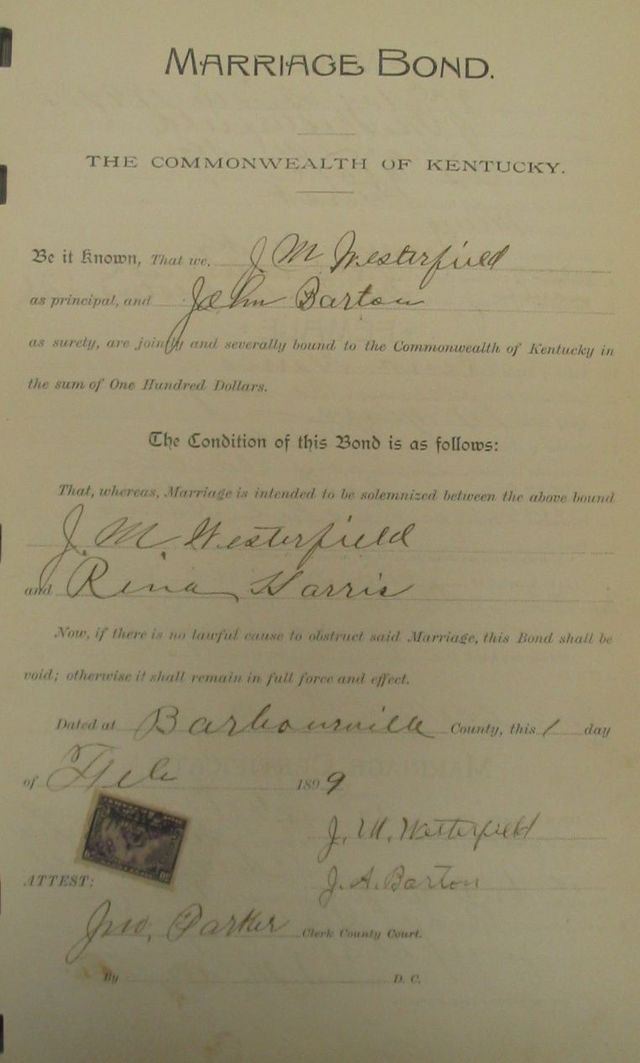 MARRIAGE BOND.
THE COMMONWEALTH OF KENTUCKY.
Be it Known, That we, J M Westerfield
as principal, and John Barton
as surety, are jointly and severally bound to the Commonwealth of Kentucky in
the sum of One Hundred Dollars.
The Condition of this Bond is as follows:
That, whereas, Marriage is intended to be solemnized between the above bound
J. M. Westerfield
and Rina Harris
Now, if there is no lawful cause to obstruct said Marriage, this Bond shall be
void; otherwise it shall remain in full force and effect.
Dated at Barbourville County, this 1 day
of Feb 1899
J. M. Westerfield
J. A. Barton
ATTEST:
Jno. Parker Clerk County Court.
By D. C.